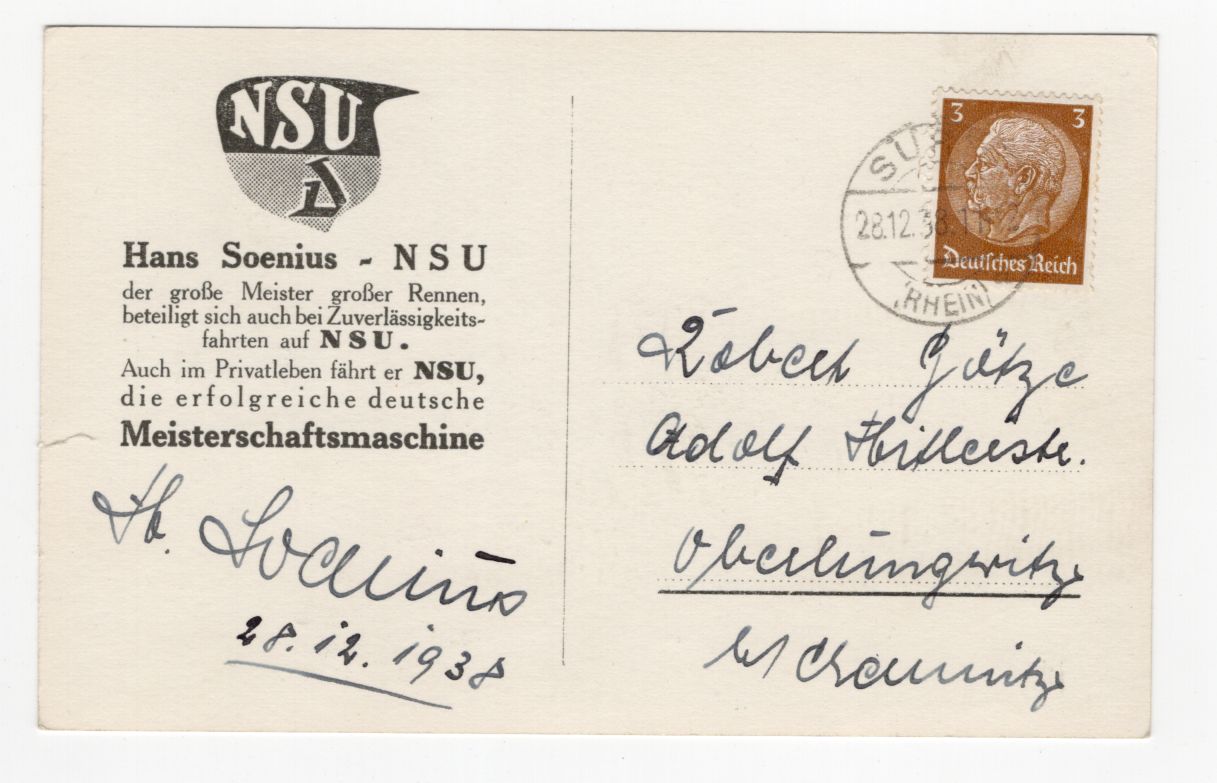 NSU
D
Hans Soenius - NSU
der große Meister großer Rennen,
beteiligt sich auch bei Zuverlässigkeits-
fahrten auf NSU.
Auch im Privatleben fährt er NSU,
die erfolgreiche deutsche
Meisterschaftsmaschine
H. Soenius
28.12.1938
3 3
Deutsches Reich
28.12.38
(RHEIN)
Robert Götze
Adolf Hitlerstr.
Oberlungwitz
b/ Chemnitz